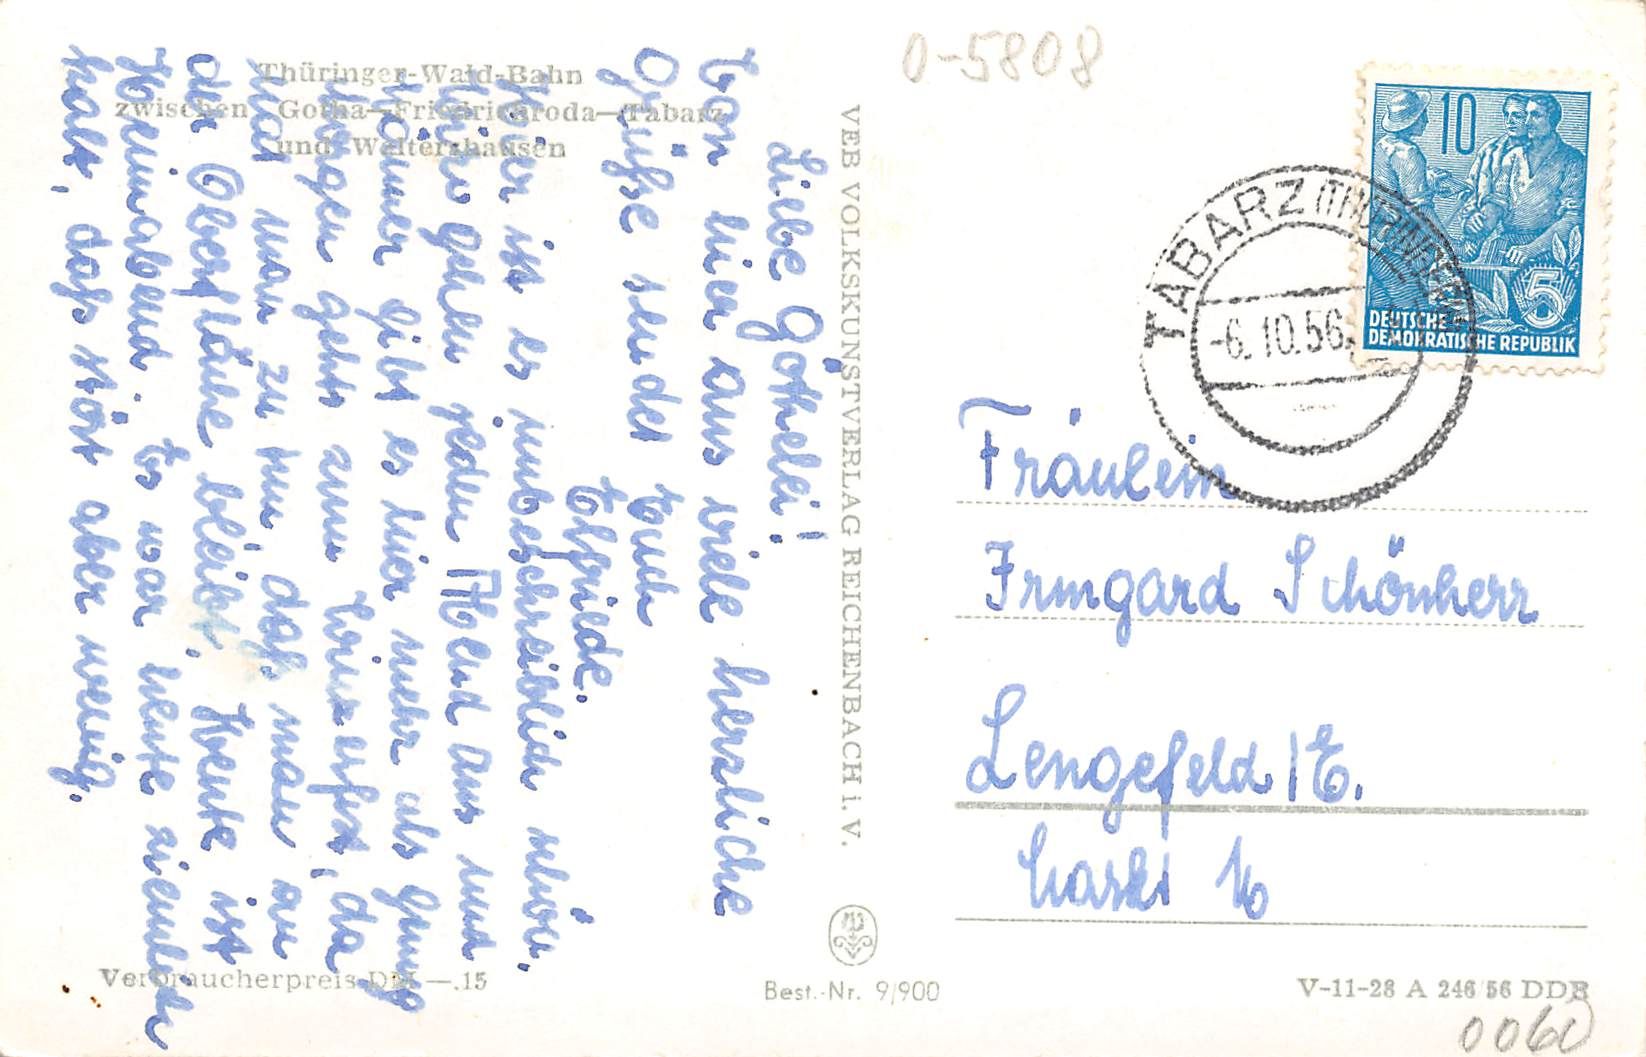 O-5808
Thüringer-Wald-Bahn
zwischen Gotha—Friedrichroda—Tabarz
und Waltershausen
Liebe Götheli!
Von hier aus viele herzliche
Grüße sendet Euch
Elfriede.
Hier ist es unbeschreiblich schön.
Wir gehen jeden Abend aus und
Männer gibt es hier mehr als genug
Morgen geht's zum erst, da
hat man zu tun, daß man an
der Oberfläche bleibt. Heute ist
Heimabend. Es war heute ziemlich
kalt, daß stört aber wenig.
VEB VOLKSKUNSTVERLAG REICHENBACH i. V.
TABARZ (THÜRINGEN)
-6.10.56.
10
5
DEUTSCHE
DEMOKRATISCHE REPUBLIK
Fräulein
Irmgard Schönherr
Lengefeld/E.
Markt 16
Verbraucherpreis DM —.15
Best.-Nr. 9/900
V-11-28 A 246/56 DDR
0060